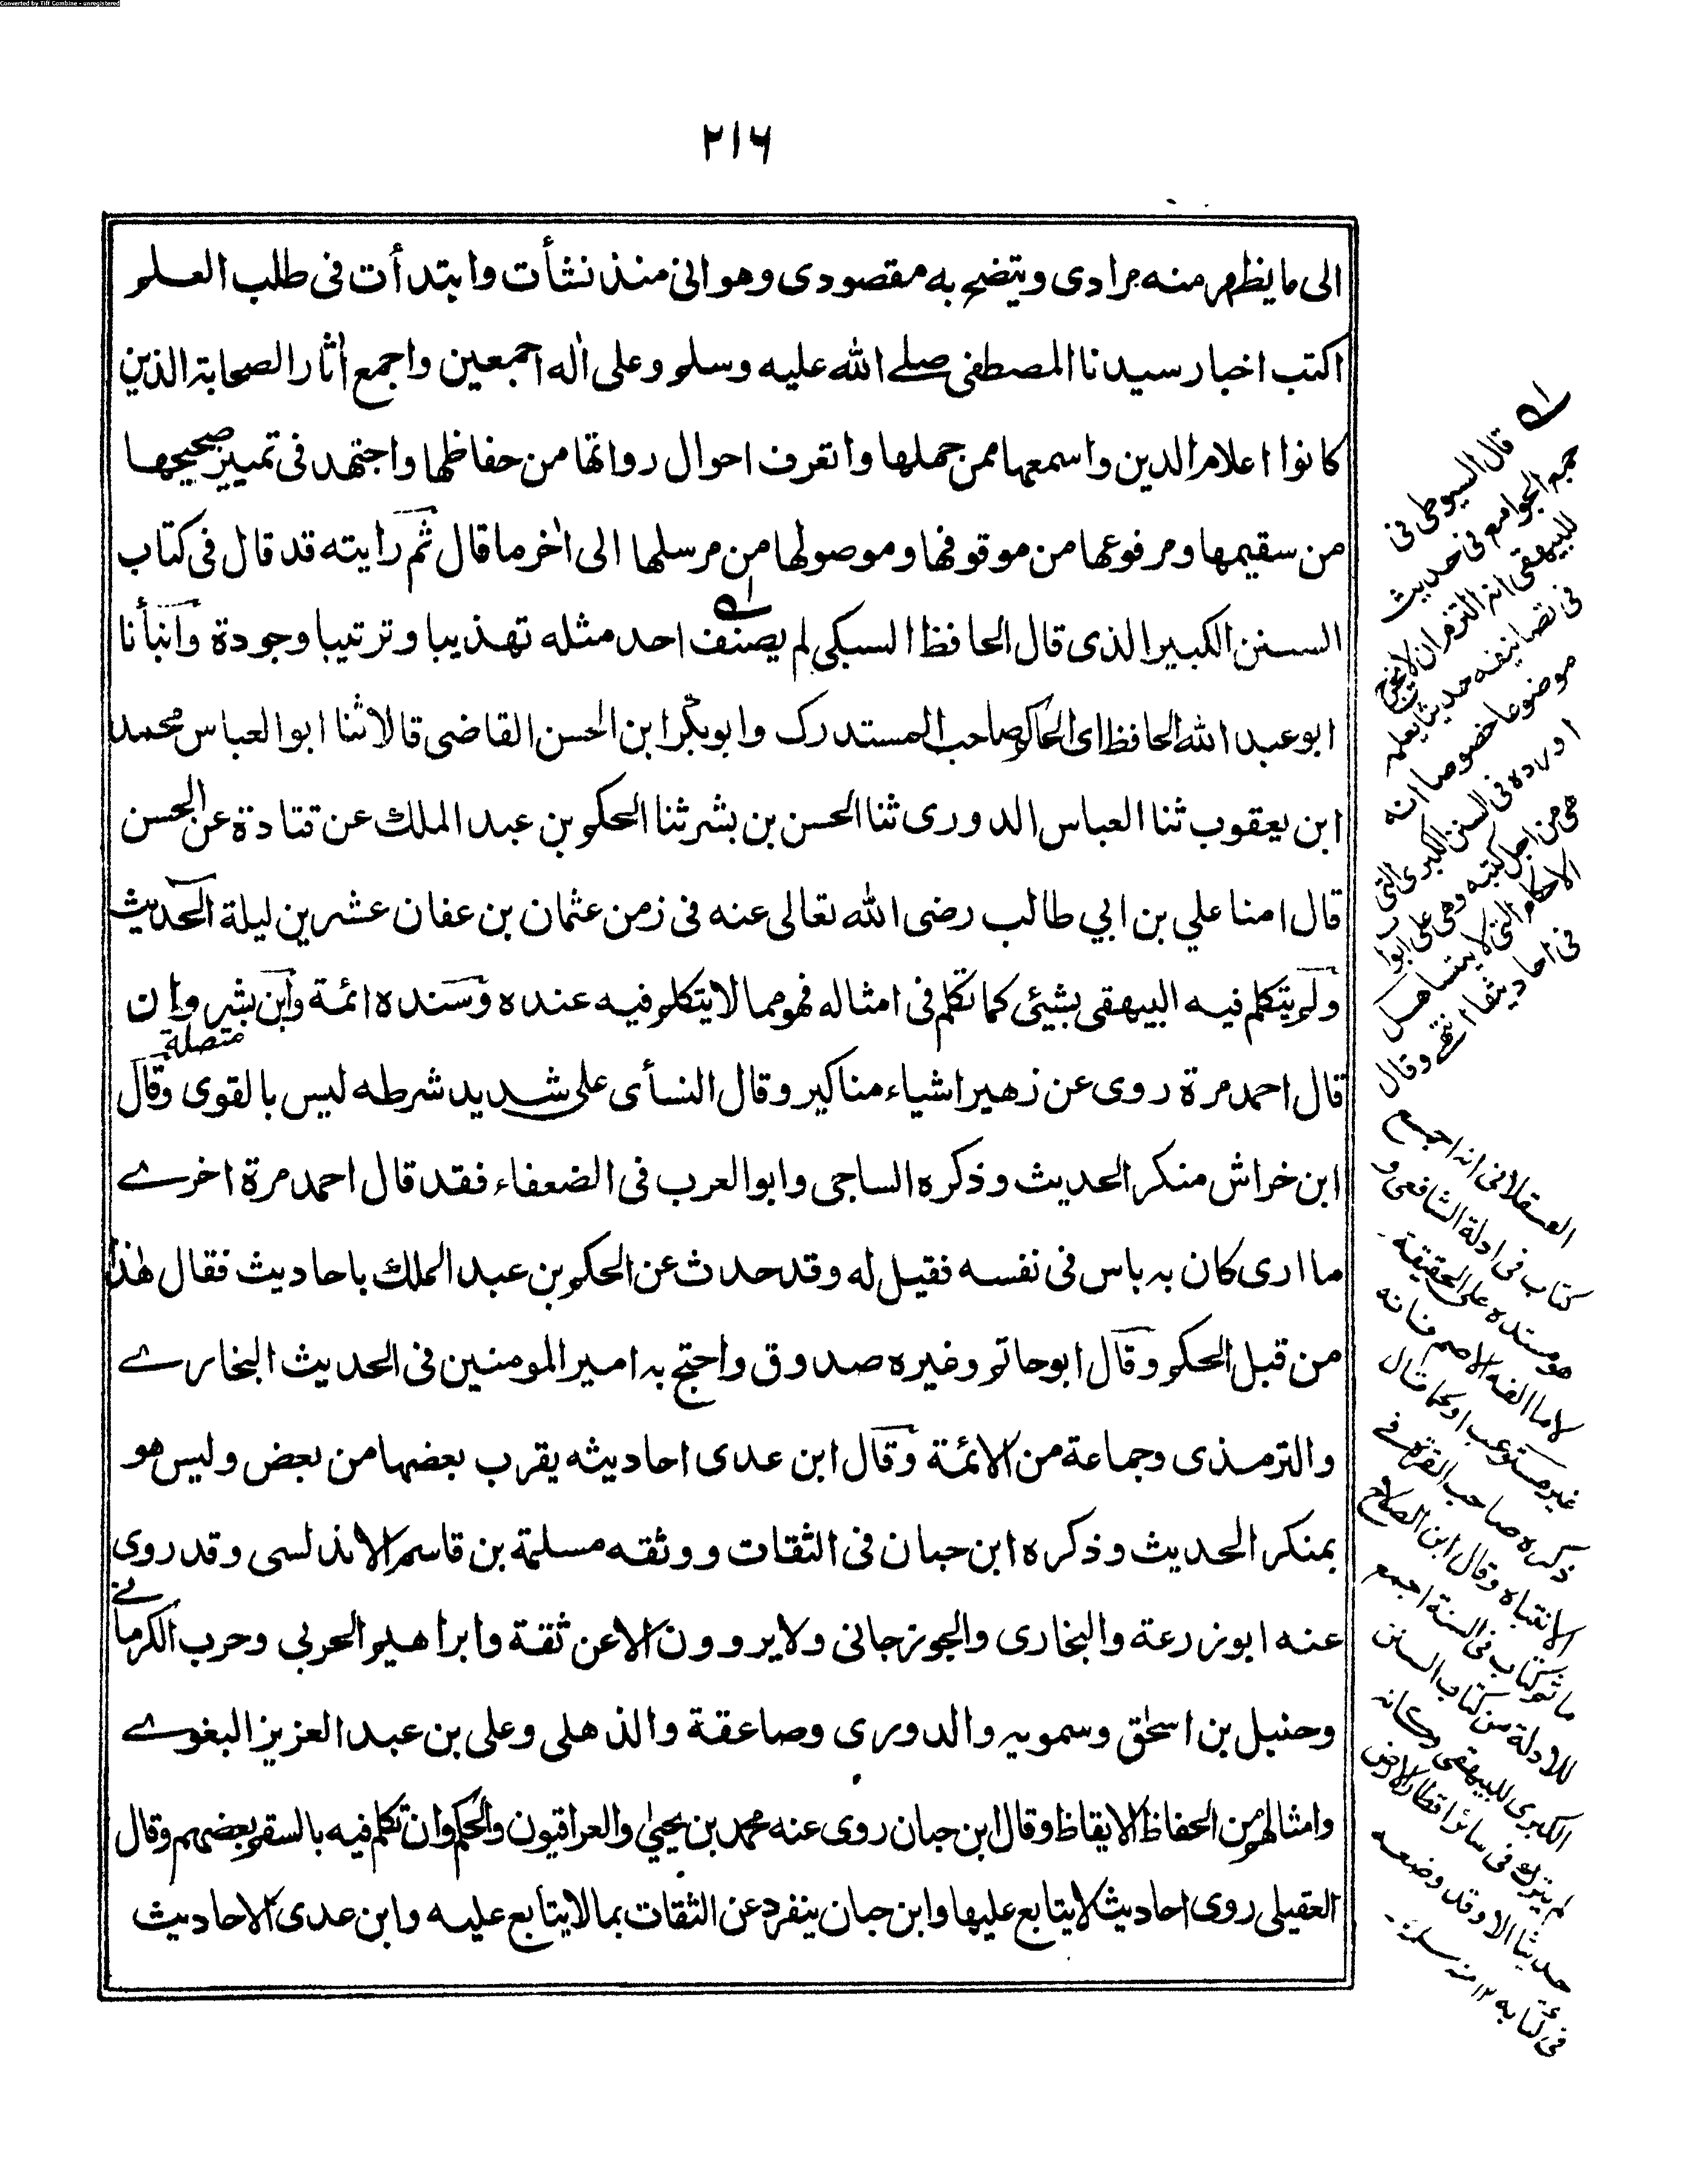 Converted by Tiff Combine - unregistered
۲۱۶
الى ما يظهر منه مرادى ويتضح به مقصودى وهو انى منذ نشأت وابتدأت فى طلب العلم
اكتب اخبار سيدنا المصطفى صلے الله عليه وسلم وعلى اٰله اجمعين واجمع اٰثار الصحابة الذين
كانوا اعلام الدين واسمعها ممن حملها واتعرف احوال رواتها من حفاظها واجتهد فى تمييز صحيحها
من سقيمها ومرفوعها من موقوفها وموصولها من مرسلها الى اٰخر ما قال ثم رايته قد قال فى كتاب
السنن الكبير الذى قال الحافظ السبكى لم يصنف احد مثله تهذيبا وترتيبا وجودة وانبأنا
ابو عبد الله الحافظ اى الحاكم صاحب المستدرك وابوبكر ابن الحسن القاضى قالا ثنا ابو العباس محمد
ابن يعقوب ثنا العباس الدورى ثنا الحسن بن بشر ثنا الحكم بن عبد الملك عن قتادة عن الحسن
قال امنا علي بن ابي طالب رضى الله تعالى عنه فى زمن عثمان بن عفان عشرين ليلة الحديث
ولم يتكلم فيه البيهقى بشيئ كما تكلم فى امثاله فهو مما لا يتكلم فيه عنده وسنده ائمة وابن بشر وان
متصلة
قال احمد مرة روى عن زهير اشياء مناكير وقال النسأى على شديد شرطه ليس بالقوى وقال
ابن خراش منكر الحديث وذكره الساجى وابو العرب فى الضعفاء فقد قال احمد مرة اخرے
ما ارى كان به باس فى نفسه فقيل له وقد حدث عن الحكم بن عبد الملك باحاديث فقال هٰذا
من قبل الحكم وقال ابو حاتم وغيره صدوق واحتج به امير المومنين فى الحديث البخارے
والترمذى وجماعة من الائمة وقال ابن عدى احاديثه يقرب بعضها من بعض وليس هو
بمنكر الحديث وذكره ابن حبان فى الثقات ووثقه مسلمة بن قاسم الاندلسى وقد روى
عنه ابو زرعة والبخارى والجوزجانى ولا يروون الا عن ثقة وابراهيم الحربى وحرب الكرمانے
وحنبل بن اسحٰق وسمويه والدورى وصاعقة والذهلى وعلى بن عبد العزيز البغوے
وامثالهم من الحفاظ الايقاظ وقال ابن حبان روى عنه محمد بن يحيىٰ والعراقيون والحكم وان تكلم فيه بالسقم بعضهم وقال
العقيلى روى احاديث لا يتابع عليها وابن حبان ينفرد عن الثقات بما لا يتابع عليه وابن عدى الاحاديث
قال السيوطى فى
جمع الجوامع فى حديث
للبيهقى انه التزم ان لا يخرج
فى تصانيفه حديثا يعلمه
موضوعا خصوصا انه
اورده فى السنن الكبرى التى
هى من اجل كتبه وهى على ابواب
الاحكام التى لا يتساهل
فى احاديثها انتهے وقال
العسقلانى انه اجمع
كتاب فى ادلة الشافعى و
هو مسنده على الحقيقة ۔
لا ما الفه الاصم فانه
غير مستوعب او كما قال
ذكره صاحب القرة فى
الانتباه وقال ابن الصلاح
ما ثم كتاب فى السنة اجمع
للادلة من كتاب السنن
الكبرى للبيهقى وكانه
لم يترك فى سائر اقطار الارض
حديثا الا وقد وضعه
فى كتابه ۱۲ منه